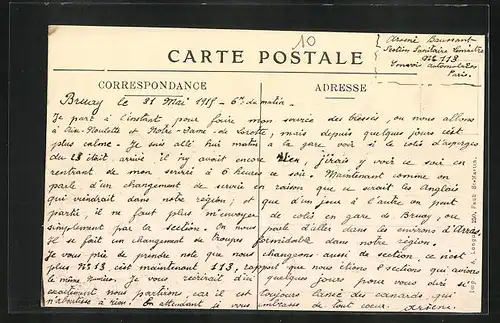 10
CARTE POSTALE
Arsène Baussant
Section Sanitaire
N° 113
Convois automobiles
Paris.
CORRESPONDANCE
ADRESSE
Bruay le 31 Mai 1915 - 6h du matin.
Je part à l'instant, pour faire mon service des blessés, ou nous allons
à Aix-Noulette et Notre-Dame-de Lorette, mais depuis quelques jours c'est
plus calme. Je suis allé hui matin à la gare voir si le colis d'asperges
du 28 était arrivé il n'y avait encore rien, j'irais y voir ce soir en
rentrant de mon service à 6 heures ce soir. Maintenant comme on
parle d'un changement de service en raison que ce serait les Anglais
qui viendrait dans notre région; et que d'un jour à l'autre on peut
partir, il ne faut plus m'envoyer de colis en gare de Bruay, ou
simplement par la section. On nous parle d'aller dans les environs d'Arras.
Il se fait un changement de troupes formidable dans notre région.
Je vous prie de prendre note que nous changeons aussi de section, ce n'est
plus N° 13 c'est maintenant 113, rapport que nous étions 2 sections qui avions
le même numéro. Je vous récrirai d'ici quelques jours pour vous dire si
exactement nous partions, car il est toujours lancé des canards qui
n'aboutisse à rien. En attendant je vous embrasse de tout coeur. Arsène
Imp. A. Longuet, 250, Faub. St-Martin.